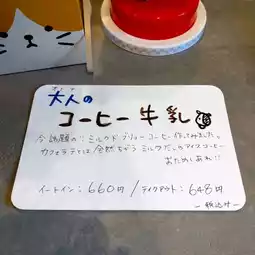 大人の
コーヒー牛乳
今話題の!ミルクドブリューコーヒー作ってみました。
カフェラテとは全然ちがうミルクたっぷりアイスコーヒー
おためしあれ!!
イートイン:660円/テイクアウト:648円
-税込み-